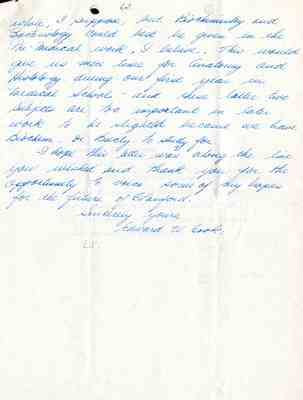 62.
while, I suppose, but Biochemistry and
Bacteriology could best be given in the
Pre Medical work, I believe. This would
give us more time for Anatomy and
Histology during our first year in
Medical School - and these latter two
subjects are too important in later
work to be slighted because we have
Biochem. or Bact'y to study for.
I hope this letter was along the line
you wished and thank you for the
opportunity to voice some of my hopes
for the future of Stanford.
Sincerely Yours
Edward W. Cook.